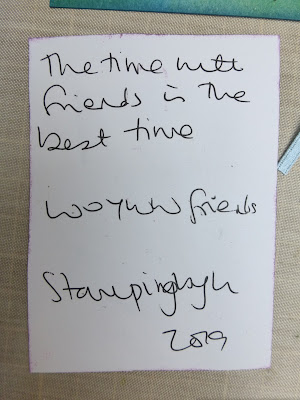 The time with
friends is the
best time
WOYWW friends
Stampingbugh
2019